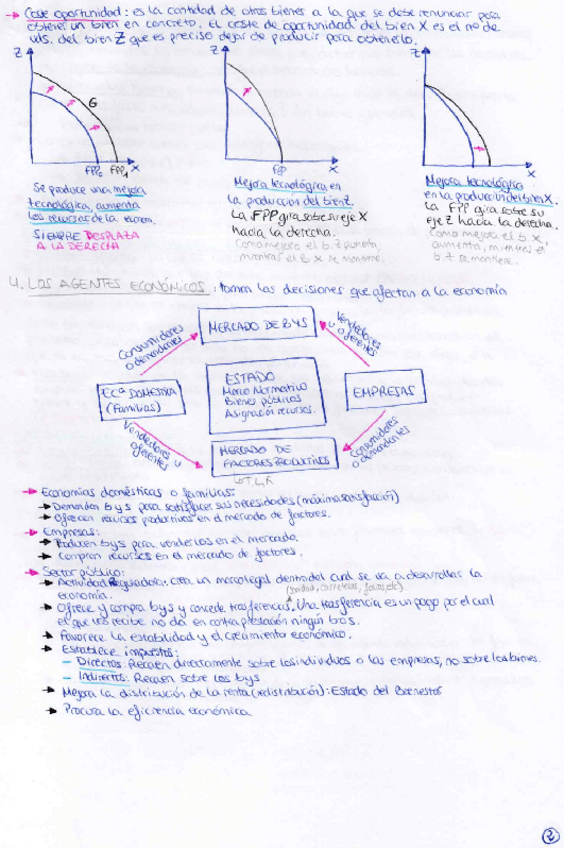 → Coste oportunidad: es la cantidad de otros bienes a la que se debe renunciar para
obtener un bien en concreto. El coste de oportunidad del bien X es el nº de
uds. del bien Z que es preciso dejar de producir para obtenerlo.
Z
G
FPP₀ FPP₁ X
Se produce una mejora
tecnológica, aumenta
los recursos de la econom.
SIEMPRE DESPLAZA
A LA DERECHA
Z
FPP X
Mejora tecnológica en
la producción del bien Z.
La FPP gira sobre su eje X
hacia la derecha.
Como mejora el b. Z aumenta,
mientras el B X se mantiene.
Z
X
Mejora tecnológica
en la producción del bien X.
La FPP gira sobre su
eje Z hacia la derecha.
Como mejora el b X,
aumenta, mientras el
b. Z se mantiene.
4. LOS AGENTES ECONÓMICOS: toman las decisiones que afectan a la economía
MERCADO DE BYS
Consumidores
o demandantes
Vendedores
u oferentes
ECª DOMESTICA
(Familias)
ESTADO
Marco Normativo
Bienes públicos
Asignación recursos.
EMPRESAS
Vendedores u
oferentes
Consumidores
o demandantes
MERCADO DE
FACTORES PRODUCTIVOS
→ Economías domésticas o familias:
→ Demandan bys para satisfacer sus necesidades (máxima satisfacción)
→ Ofrecen recursos productivos en el mercado de factores.
→ Empresas:
→ Producen bys para venderlos en el mercado.
→ Compran recursos en el mercado de factores.
→ Sector público:
→ Actividad Reguladora: crea un marco legal dentro del cual se va a desarrollar la
economía.
(sanidad, carreteras, faros, etc)
→ Ofrece y compra bys y concede trasferencias. Una trasferencia es un pago por el cual
el que los recibe no da en contraprestación ningún bos.
→ Favorece la estabilidad y el crecimiento económico.
→ Establece impuestos:
– Directos: Recaen directamente sobre los individuos o las empresas, no sobre los bienes.
– Indirectos: Recaen sobre los bys
→ Mejora la distribución de la renta (redistribución): Estado del Bienestar
→ Procura la eficiencia económica
2